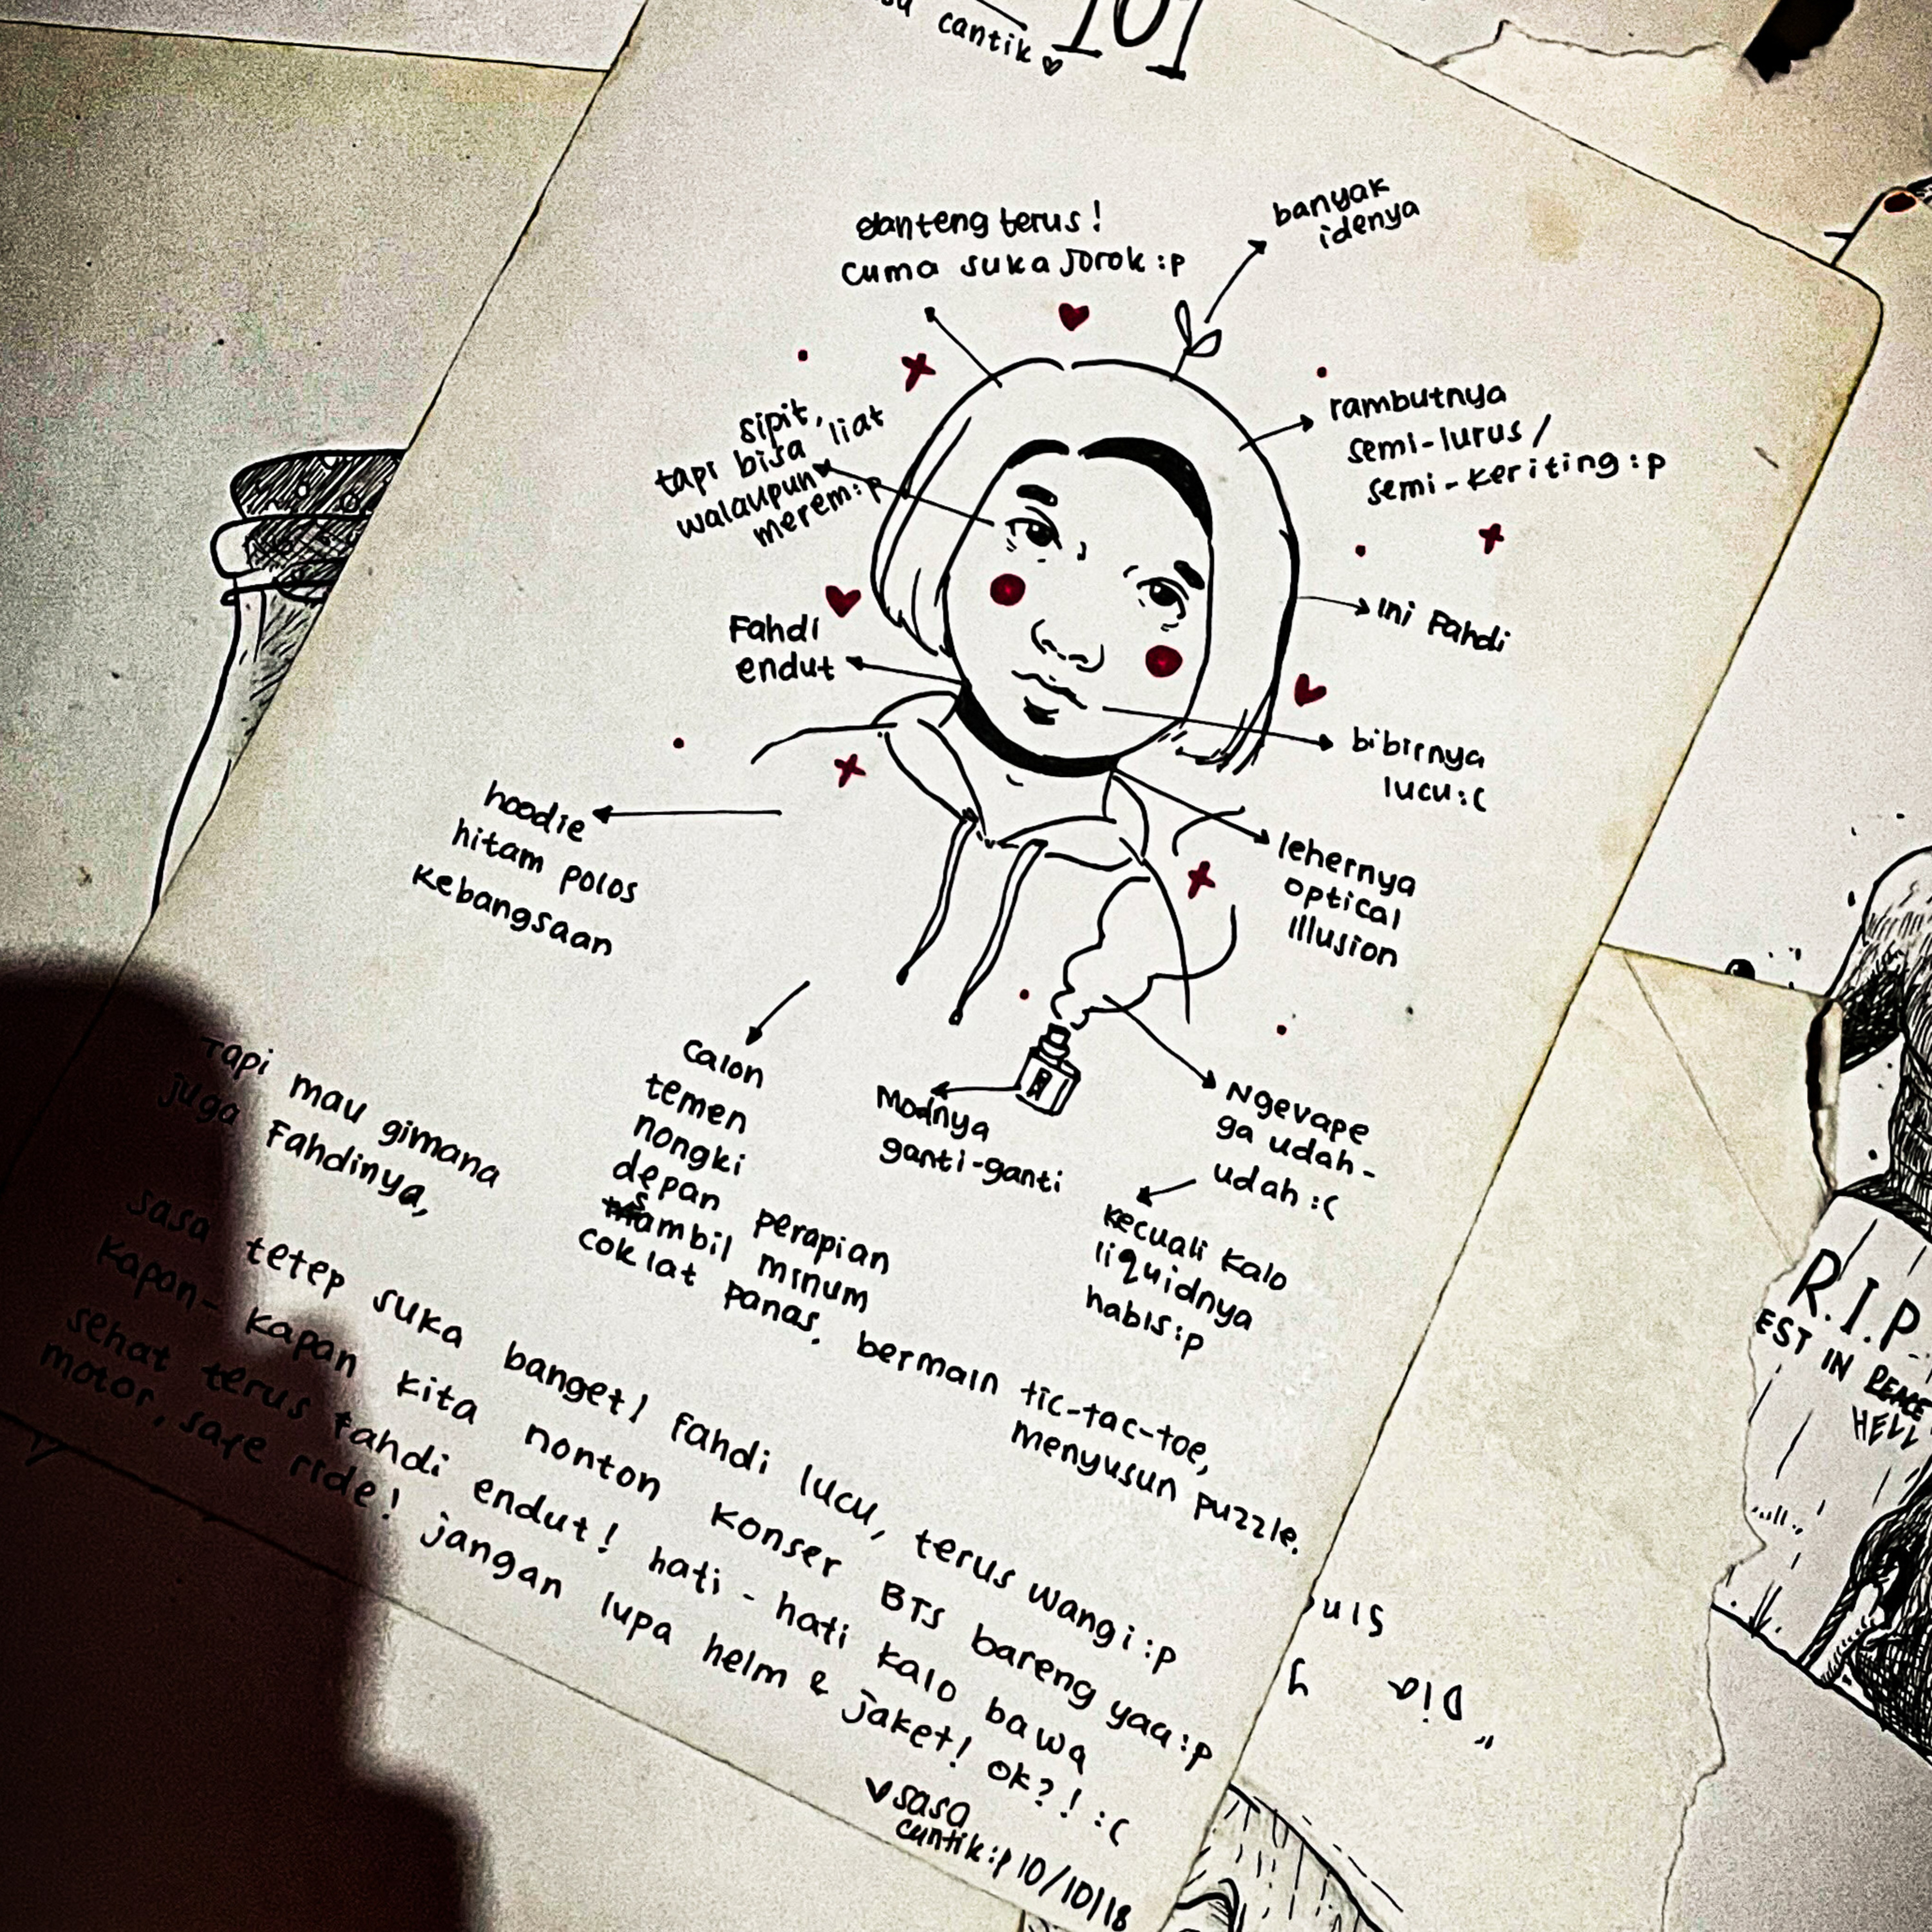 cantik
101
ganteng terus!
cuma suka jorok :p
banyak
idenya
sipit,
tapi bisa liat
walaupun
merem :p
rambutnya
semi-lurus /
semi-keriting :p
Fahdi
endut
ini Fahdi
bibirnya
lucu :(
hoodie
hitam polos
kebangsaan
lehernya
optical
illusion
calon
temen
nongki
depan perapian
sambil minum
coklat panas, bermain tic-tac-toe,
menyusun puzzle.
Modnya
ganti-ganti
Ngevape
ga udah-
udah :(
kecuali kalo
liquidnya
habis :p
Tapi mau gimana
juga Fahdinya,
sasa tetep suka banget! Fahdi lucu, terus wangi :p
Kapan-kapan kita nonton konser BTS bareng yaa :p
sehat terus Fahdi endut! hati-hati kalo bawa
motor, safe ride! jangan lupa helm & jaket! ok?! :(
♥ sasa
cantik :p 10/10/18
R.I.P
EST IN PEACE
HELL
Dia